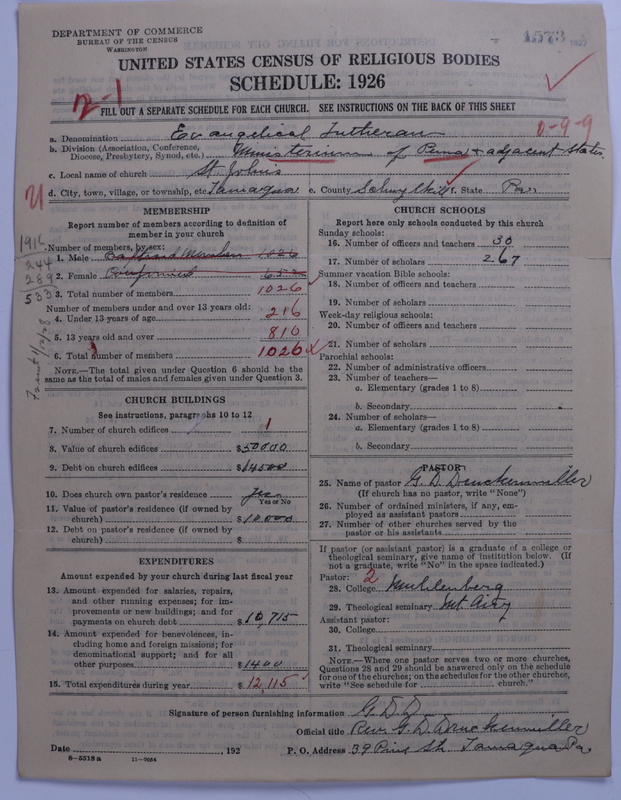 DEPARTMENT OF COMMERCE
BUREAU OF THE CENSUS
WASHINGTON
4573
UNITED STATES CENSUS OF RELIGIOUS BODIES
SCHEDULE: 1926
12-1
FILL OUT A SEPARATE SCHEDULE FOR EACH CHURCH. SEE INSTRUCTIONS ON THE BACK OF THIS SHEET
0-9-9
a. Denomination Evangelical Lutheran
b. Division (Association, Conference, Diocese, Presbytery, Synod, etc.) Ministerium of Penna & adjacent States.
c. Local name of church St. John's
d. City, town, village, or township, etc. Tamaqua e. County Schuylkill f. State Pa.
U
MEMBERSHIP
Report number of members according to definition of
member in your church
1916
244
289
533
Number of members, by sex:
1. Male Baptized Members 1026
2. Female Confirmed
3. Total number of members 1026
Number of members under and over 13 years old:
4. Under 13 years of age 216
5. 13 years old and over 810
6. Total number of members 1026
NOTE.—The total given under Question 6 should be the
same as the total of males and females given under Question 3.
CHURCH BUILDINGS
See instructions, paragraphs 10 to 12
7. Number of church edifices 1
8. Value of church edifices $50000
9. Debt on church edifices $14500
10. Does church own pastor's residence Yes
Yes or No
11. Value of pastor's residence (if owned by
church) $10000
12. Debt on pastor's residence (if owned by
church) $
EXPENDITURES
Amount expended by your church during last fiscal year
13. Amount expended for salaries, repairs,
and other running expenses; for im-
provements or new buildings; and for
payments on church debt $10,715
14. Amount expended for benevolences, in-
cluding home and foreign missions; for
denominational support; and for all
other purposes $1400
15. Total expenditures during year $12,115
CHURCH SCHOOLS
Report here only schools conducted by this church
Sunday schools:
16. Number of officers and teachers 30
17. Number of scholars 267
Summer vacation Bible schools:
18. Number of officers and teachers
19. Number of scholars
Week-day religious schools:
20. Number of officers and teachers
21. Number of scholars
Parochial schools:
22. Number of administrative officers
23. Number of teachers—
a. Elementary (grades 1 to 8)
b. Secondary
24. Number of scholars—
a. Elementary (grades 1 to 8)
b. Secondary
PASTOR
25. Name of pastor G. D. Druckenmiller
(If church has no pastor, write "None")
26. Number of ordained ministers, if any, em-
ployed as assistant pastors
27. Number of other churches served by the
pastor or his assistants
If pastor (or assistant pastor) is a graduate of a college or
theological seminary, give name of institution below. (If
not a graduate, write "No" in the space indicated.)
Pastor: 2
28. College Muhlenberg
29. Theological seminary Mt Airy
Assistant pastor:
30. College
31. Theological seminary
NOTE.—Where one pastor serves two or more churches,
Questions 28 and 29 should be answered only on the schedule
for one of the churches; on the schedules for the other churches,
write "See schedule for church."
Signature of person furnishing information G. D. D.
Official title Rev. G. D. Druckenmiller
Date , 192 P. O. Address 39 Pine St. Tamaqua Pa.
8-5518a 11-9054